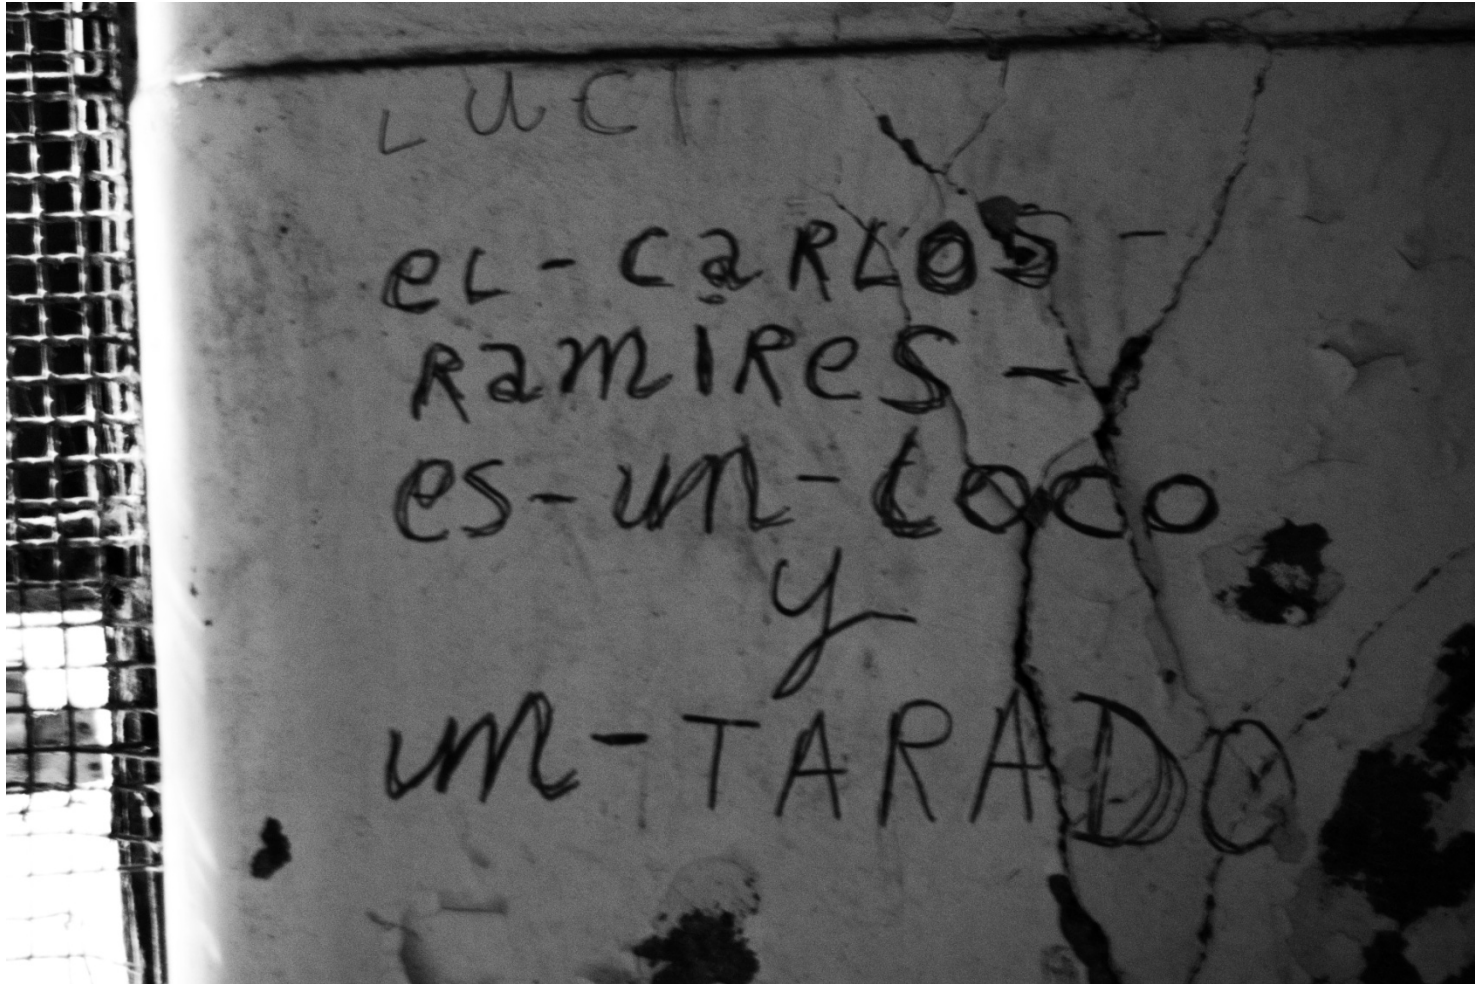 LUCI
eL-CaRLOS-
RamIRes-
es-un-Loco
y
un-TARADO